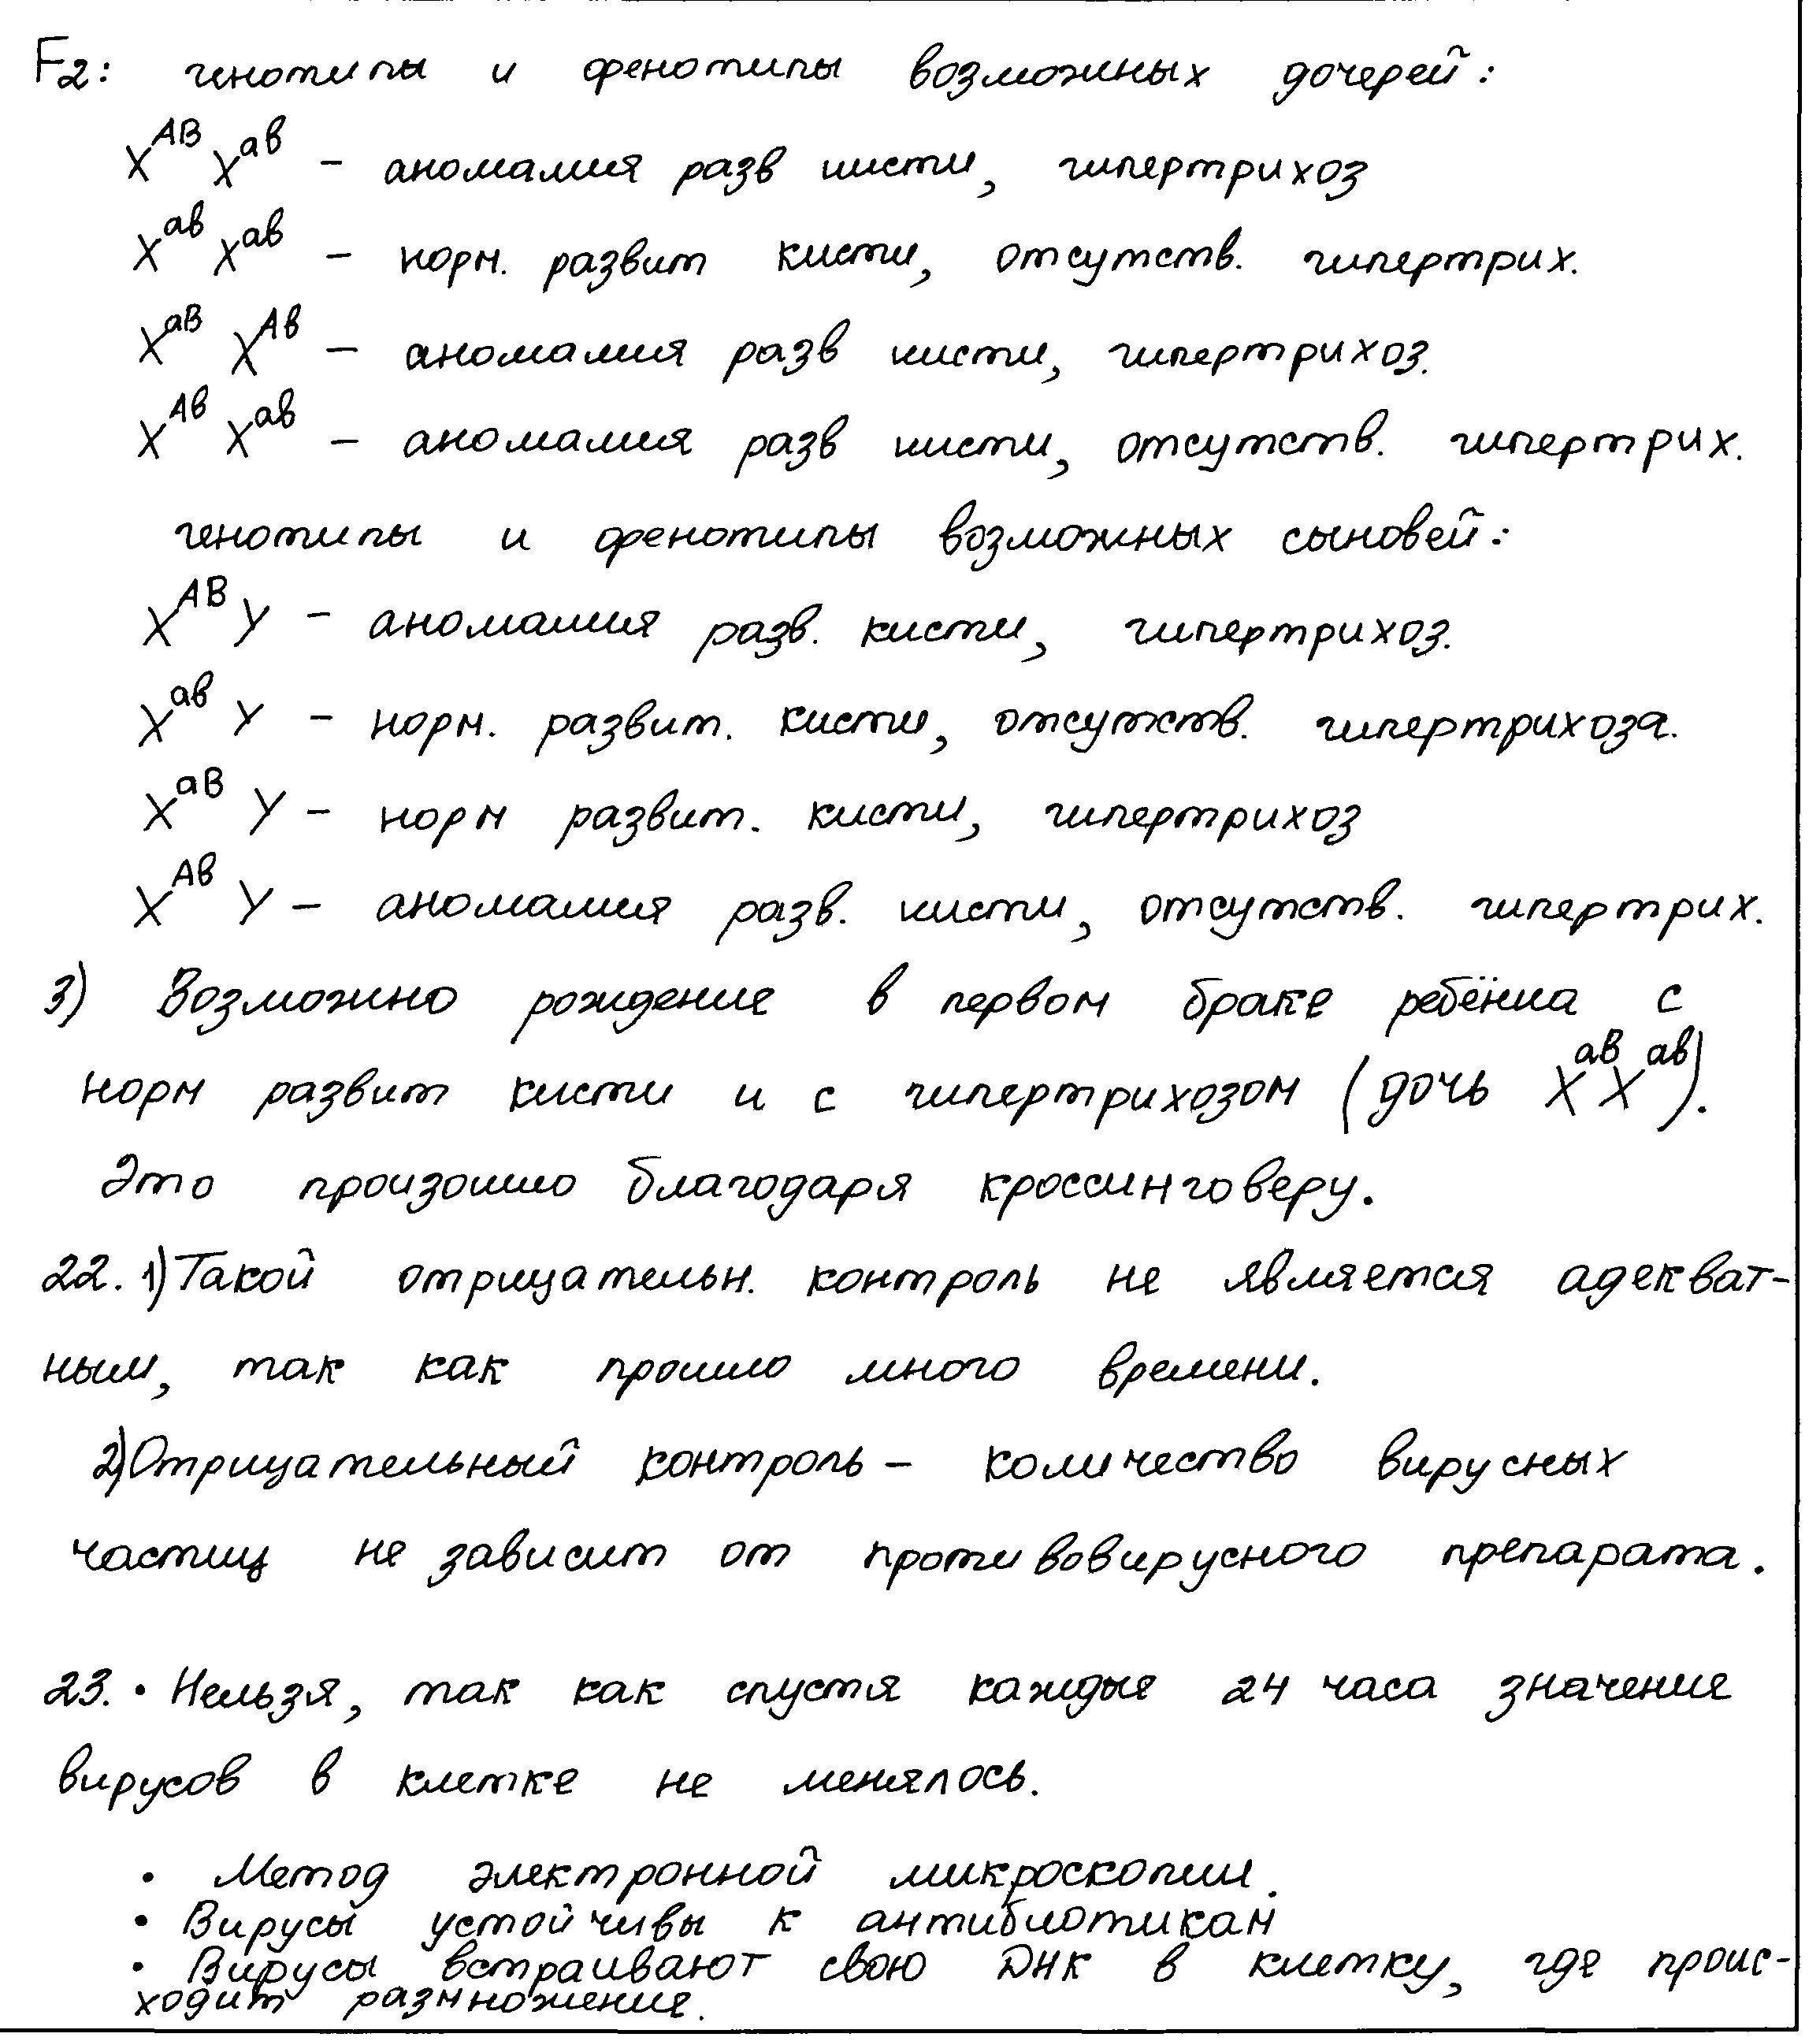 F2: генотипы и фенотипы возможных дочерей:
X^AB X^ав – аномалия разв кисти, гипертрихоз
X^ав X^ав – норм. развит кисти, отсутств. гипертрих.
X^аВ X^Ав – аномалия разв кисти, гипертрихоз.
X^Ав X^ав – аномалия разв кисти, отсутств. гипертрих.
генотипы и фенотипы возможных сыновей:
X^AB Y – аномалия разв. кисти, гипертрихоз.
X^ав Y – норм. развит. кисти, отсутств. гипертрихоза.
X^аВ Y – норм развит. кисти, гипертрихоз
X^Ав Y – аномалия разв. кисти, отсутств. гипертрих.
3) Возможно рождение в первом браке ребёнка с
норм развит кисти и с гипертрихозом (дочь X^аВ X^ав).
Это произошло благодаря кроссинговеру.
22. 1) Такой отрицательн. контроль не является адекват-
ным, так как прошло много времени.
2) Отрицательный контроль – количество вирусных
частиц не зависит от противовирусного препарата.
23. • Нельзя, так как спустя каждые 24 часа значение
вирусов в клетке не менялось.
• Метод электронной микроскопии.
• Вирусы устойчивы к антибиотикам
• Вирусы встраивают свою ДНК в клетку, где проис-
ходит размножение.